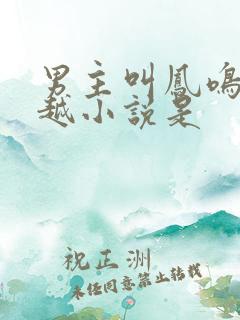 男主叫鳳鳴
越小說是
祝正洲
未经同意禁止转载